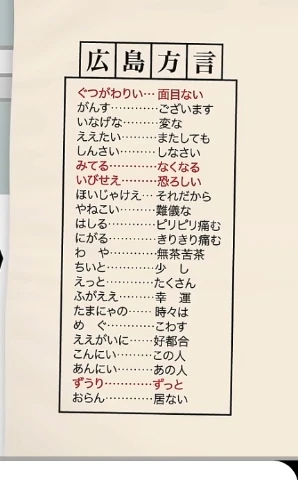 広島方言
ぐつがわりい…面目ない
がんす…………ございます
いなげな………変な
ええたい………またしても
しんさい………しなさい
みてる…………なくなる
いびせえ………恐ろしい
ほいじゃけえ…それだから
やねこい………難儀な
はしる…………ピリピリ痛む
にがる…………きりきり痛む
わ　や…………無茶苦茶
ちいと…………少　し
えっと…………たくさん
ふがええ………幸　運
たまにゃの……時々は
め　ぐ…………こわす
ええがいに……好都合
こんにい………この人
あんにい………あの人
ずうり…………ずっと
おらん…………居ない